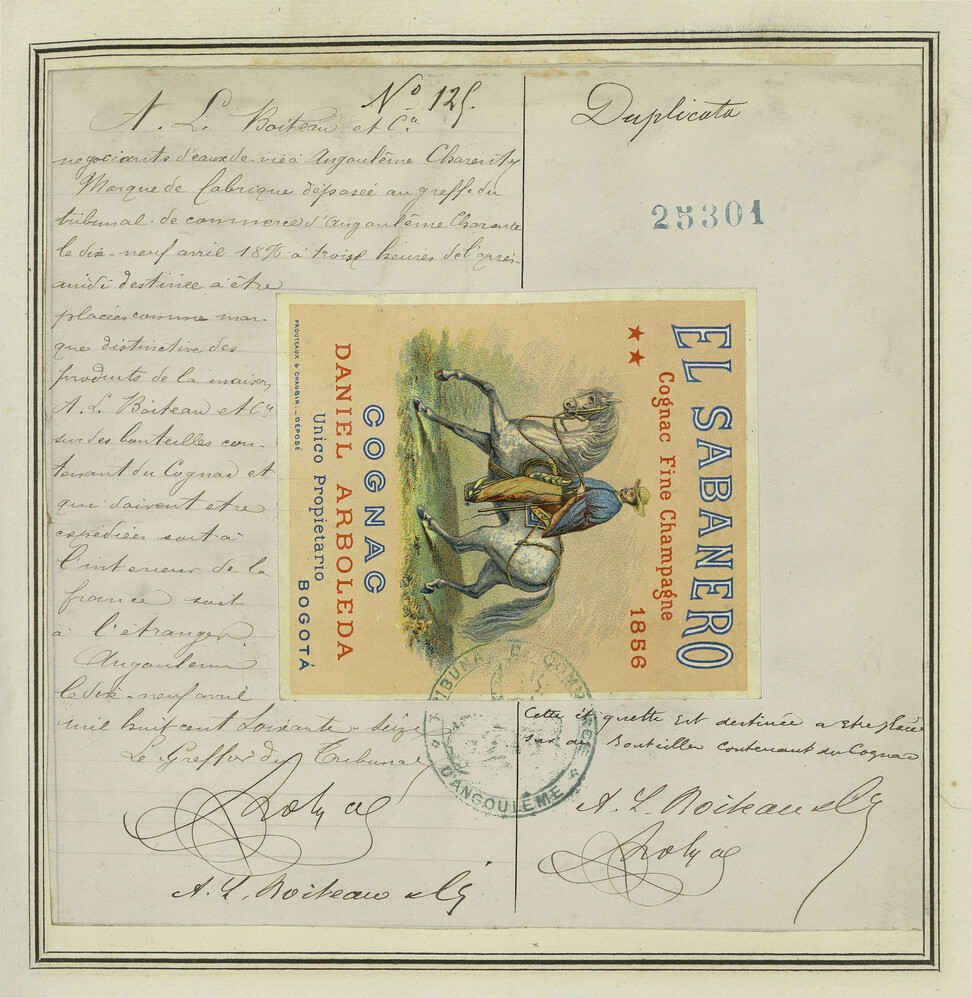 No 125.
A. L. Boiteau et Cie
negociants d'eaux de vie à Angoulême Charente
Marque de fabrique déposée au greffe du
tribunal de commerce d'Angoulême Charente
le dix-neuf avril 1876 à trois heures de l'après-
midi destinée à être
placées comme mar-
que distinctive des
produits de la maison
A. L. Boiteau et Cie
sur des bouteilles con-
tenant du Cognac et
qui doivent etre
expédiées soit à
l'interieur de la
france soit
à l'étranger
Angouleme
le dix-neuf avril
mil huit cent soixante-seize
Le Greffier du Tribunal
A. L. Boiteau & Cie
Duplicata
25301
EL SABANERO
Cognac Fine Champagne
1856
COGNAC
DANIEL ARBOLEDA
Unico Propietario
BOGOTÁ
PROUTEAUX & CHAUBIN._DÉPOSÉ
TRIBUNAL DE COMMERCE
D'ANGOULÊME
Cette étiquette est destinée a etre placée
sur des Bouteilles contenant du Cognac
A. L. Boiteau & Cie